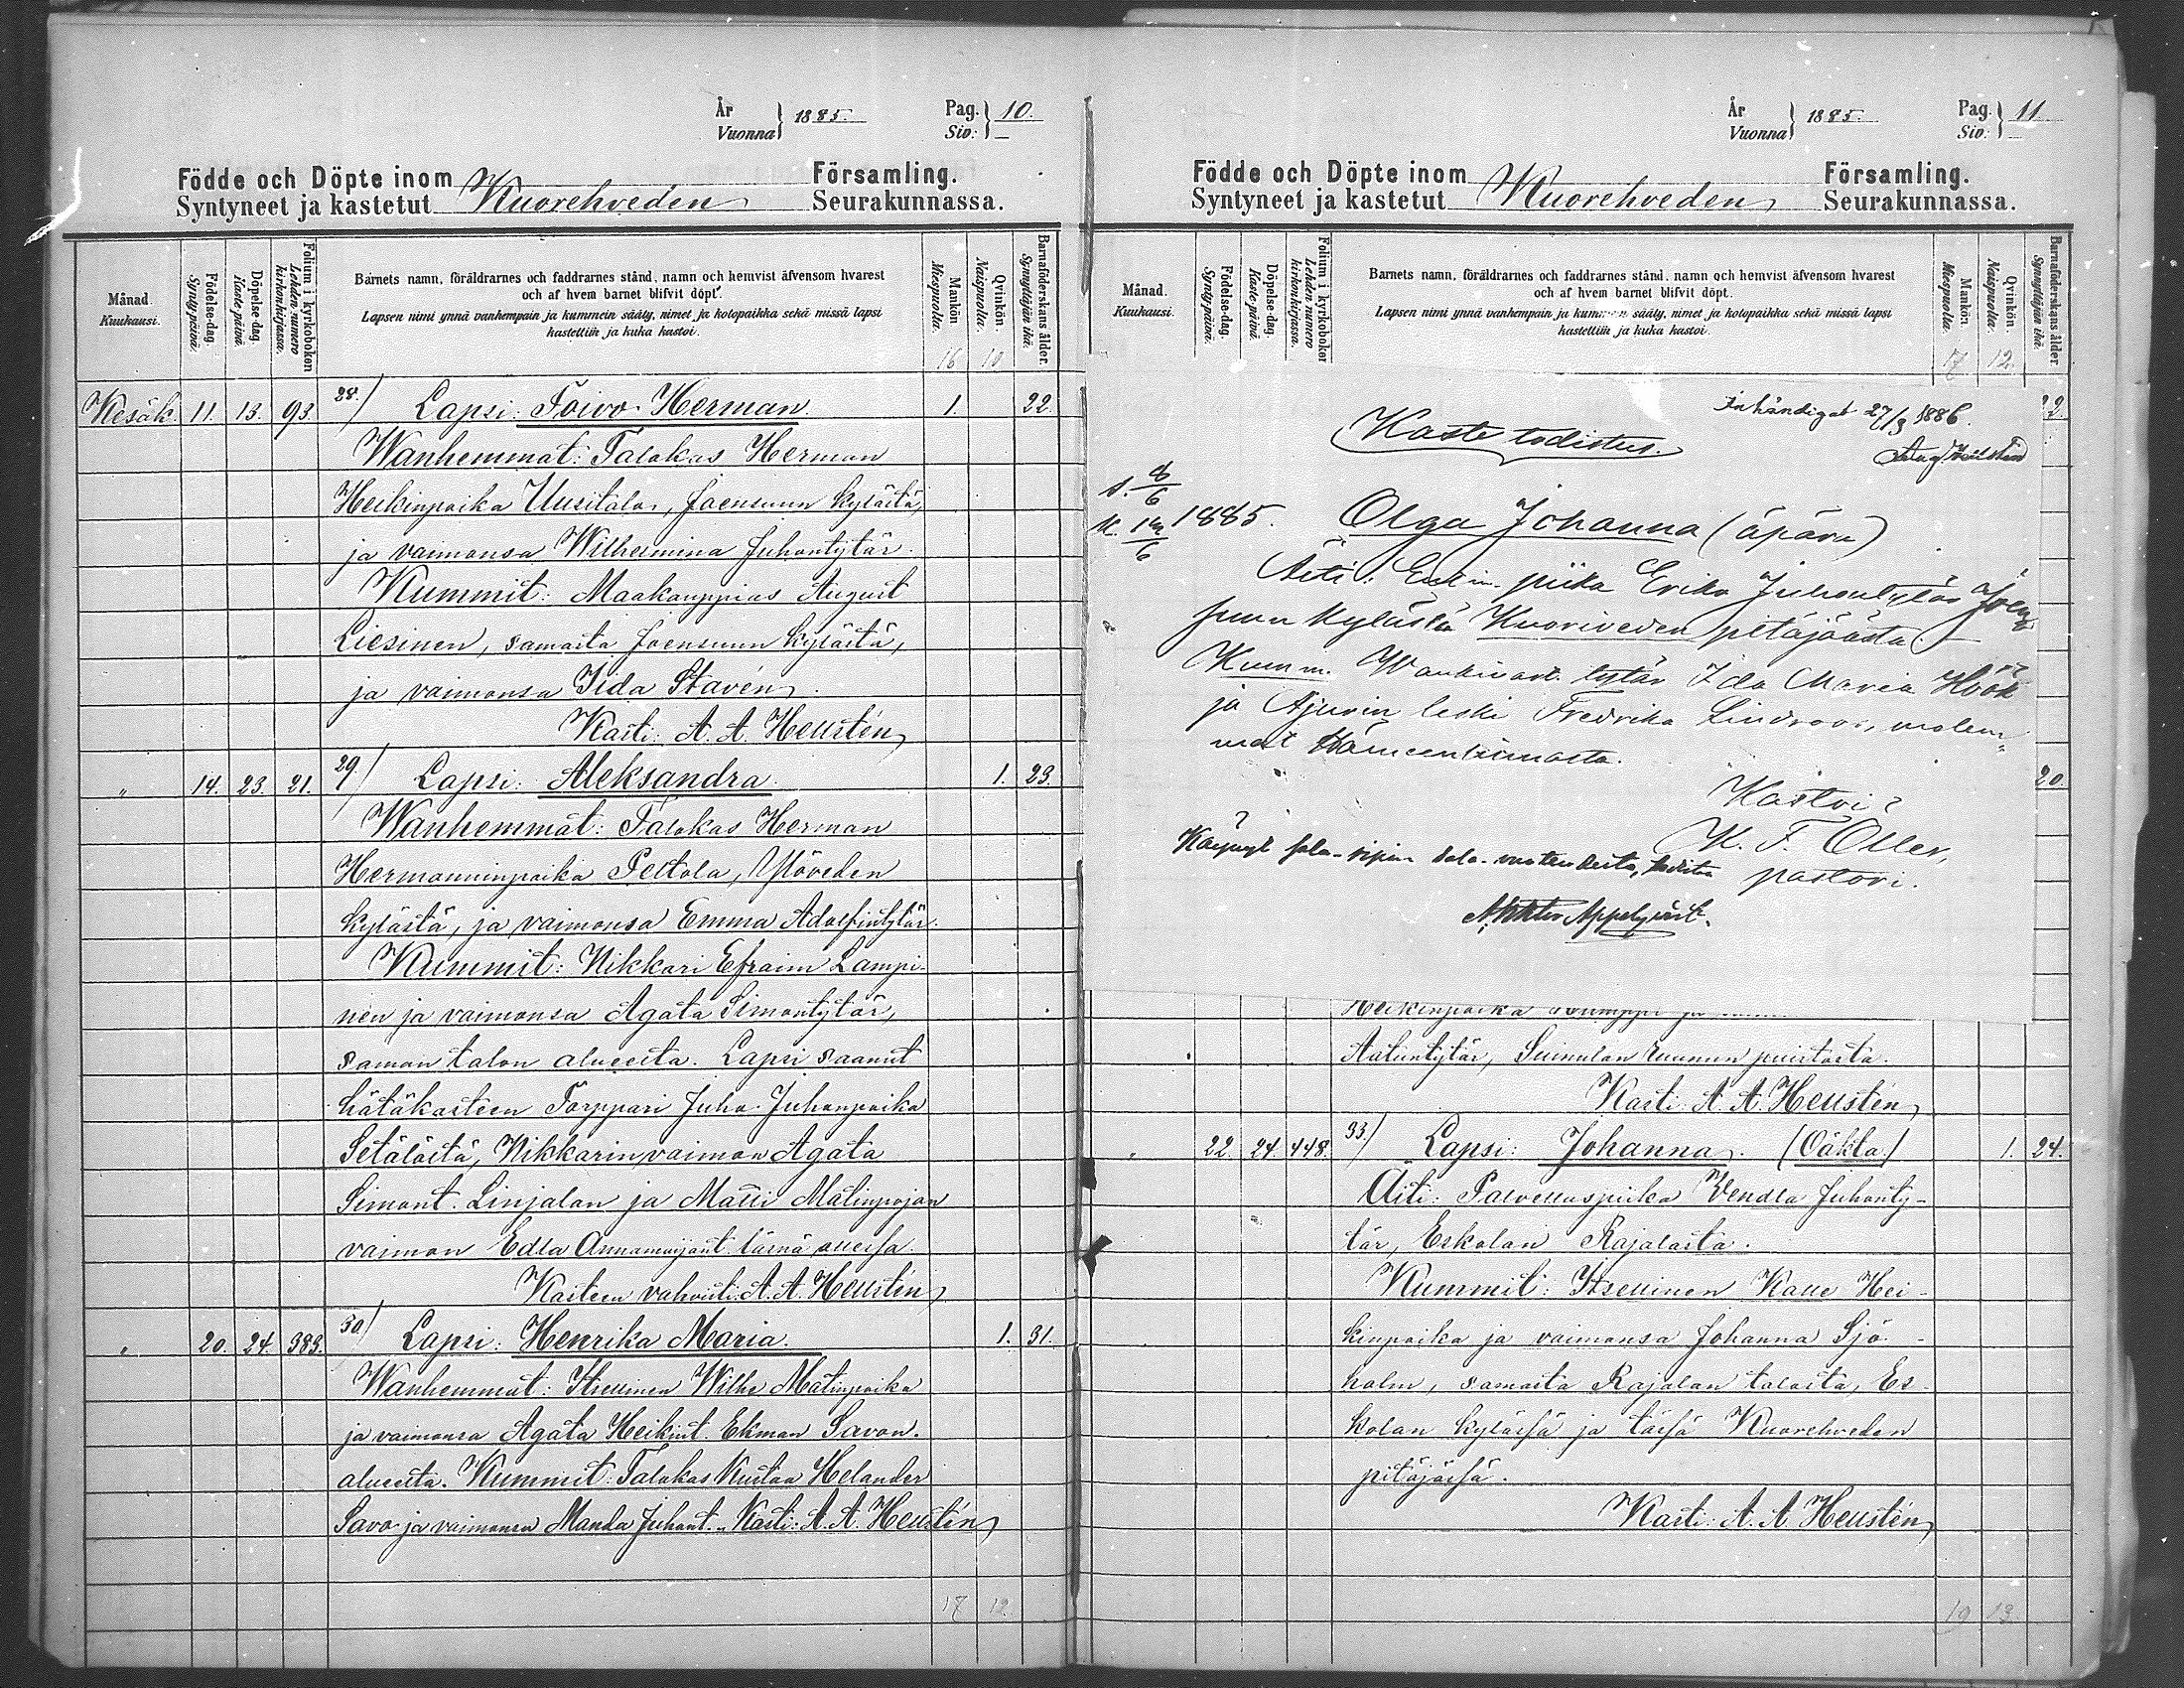 År
Vuonna } 1885.
Pag.
Siv: } 10.
Födde och Döpte inom
Syntyneet ja kastetut
Kuorehveden
Församling.
Seurakunnassa.
Månad.
Kuukausi.
Födelse-dag.
Syntypäivä.
Döpelse-dag.
Kaste-päivä.
Folium i kyrkoboken
Lehden numero
kirkonkirjassa.
Barnets namn, föräldrarnes och faddrarnes stånd, namn och hemvist äfvensom hvarest
och af hvem barnet blifvit döpt.
Lapsen nimi ynnä vanhempain ja kummein sääty, nimet ja kotopaikka sekä missä lapsi
kastettiin ja kuka kastoi.
Mankön.
Miespuolta.
Qvinkön.
Naispuolta.
Barnaföderskans ålder.
Synnyttäjän ikä.
16 10
Kesäk. 11. 13. 93. 28./ Lapsi: Toivo Herman. 1. 22.
Wanhemmat: Talokas Herman
Heikinpoika Uusitalo, Joensuun kylästä,
ja vaimonsa Wilhelmina Juhontytär.
Kummit: Maakauppias August
Liesinen, samasta Joensuun kylästä,
ja vaimonsa Iida Stavén.
Kasti: A. A. Hellstén
" 14. 23. 21. 29./ Lapsi: Aleksandra. 1. 23.
Wanhemmat: Talokas Herman
Hermanninpoika Peltola, Ylöveden
kylästä, ja vaimonsa Emma Adolfintytär.
Kummit: Nikkari Efraim Lampi-
nen ja vaimonsa Agata Simontytär,
saman talon alueelta. Lapsi saanut
hätäkasteen Torppari Juho Juhonpoika
Setälästä, Nikkarin vaimon Agata
Simont. Linjalan ja Matti Matinpojan
vaimon Edla Annamaijant. läsnä ollessa.
Kasteen vahvisti: A. A. Hellstén
" 20. 24. 383. 30./ Lapsi: Henrika Maria. 1. 31.
Wanhemmat: Itsellinen Wilhe Matinpoika
ja vaimonsa Agata Heikint. Ekman Savon
alueelta. Kummit: Talokas Kustaa Helander
Savo ja vaimonsa Manda Juhont. Kasti: A. A. Hellstén
17 12
År
Vuonna } 1885.
Pag.
Siv: } 11
Födde och Döpte inom
Syntyneet ja kastetut
Kuorehveden
Församling.
Seurakunnassa.
Månad.
Kuukausi.
Födelse-dag.
Syntypäivä.
Döpelse-dag.
Kaste-päivä.
Folium i kyrkoboken
Lehden numero
kirkonkirjassa.
Barnets namn, föräldrarnes och faddrarnes stånd, namn och hemvist äfvensom hvarest
och af hvem barnet blifvit döpt.
Lapsen nimi ynnä vanhempain ja kummein sääty, nimet ja kotopaikka sekä missä lapsi
kastettiin ja kuka kastoi.
Mankön.
Miespuolta.
Qvinkön.
Naispuolta.
Barnaföderskans ålder.
Synnyttäjän ikä.
17 12.
Inhändigat 27/3 1886.
Aug. Hellstén
22.
Kaste todistus.
s. 8/6
k. /6 1885. Olga Johanna (äpärä)
Äiti: piika Erika Juhontytär Joen-
suun kylästä Kuoriveden pitäjäästä.
Kumm. tytär Ida Maria Höök
ja Ajurin leski Fredrika Lindroos, molem-
mat Hämeenlinnasta.
20.
Kastoi:
K. F. Oller,
pastori.
Appelqvist.
Heikinpoika
Aatuntytär, Suinulan ruunun puistosta.
Kasti: A. A. Hellstén
" 22. 24. 448. 33./ Lapsi: Johanna. (Oäkta) 1. 24.
Äiti: Palvelluspiika Vendla Juhonty-
tär, Eskolan Rajalasta.
Kummit: Itsellinen Kalle Hei-
kinpoika ja vaimonsa Johanna Sjö-
holm, samasta Rajalan talosta, Es-
kolan kylässä ja tässä Kuorehveden
pitäjässä.
Kasti: A. A. Hellstén
19 13.